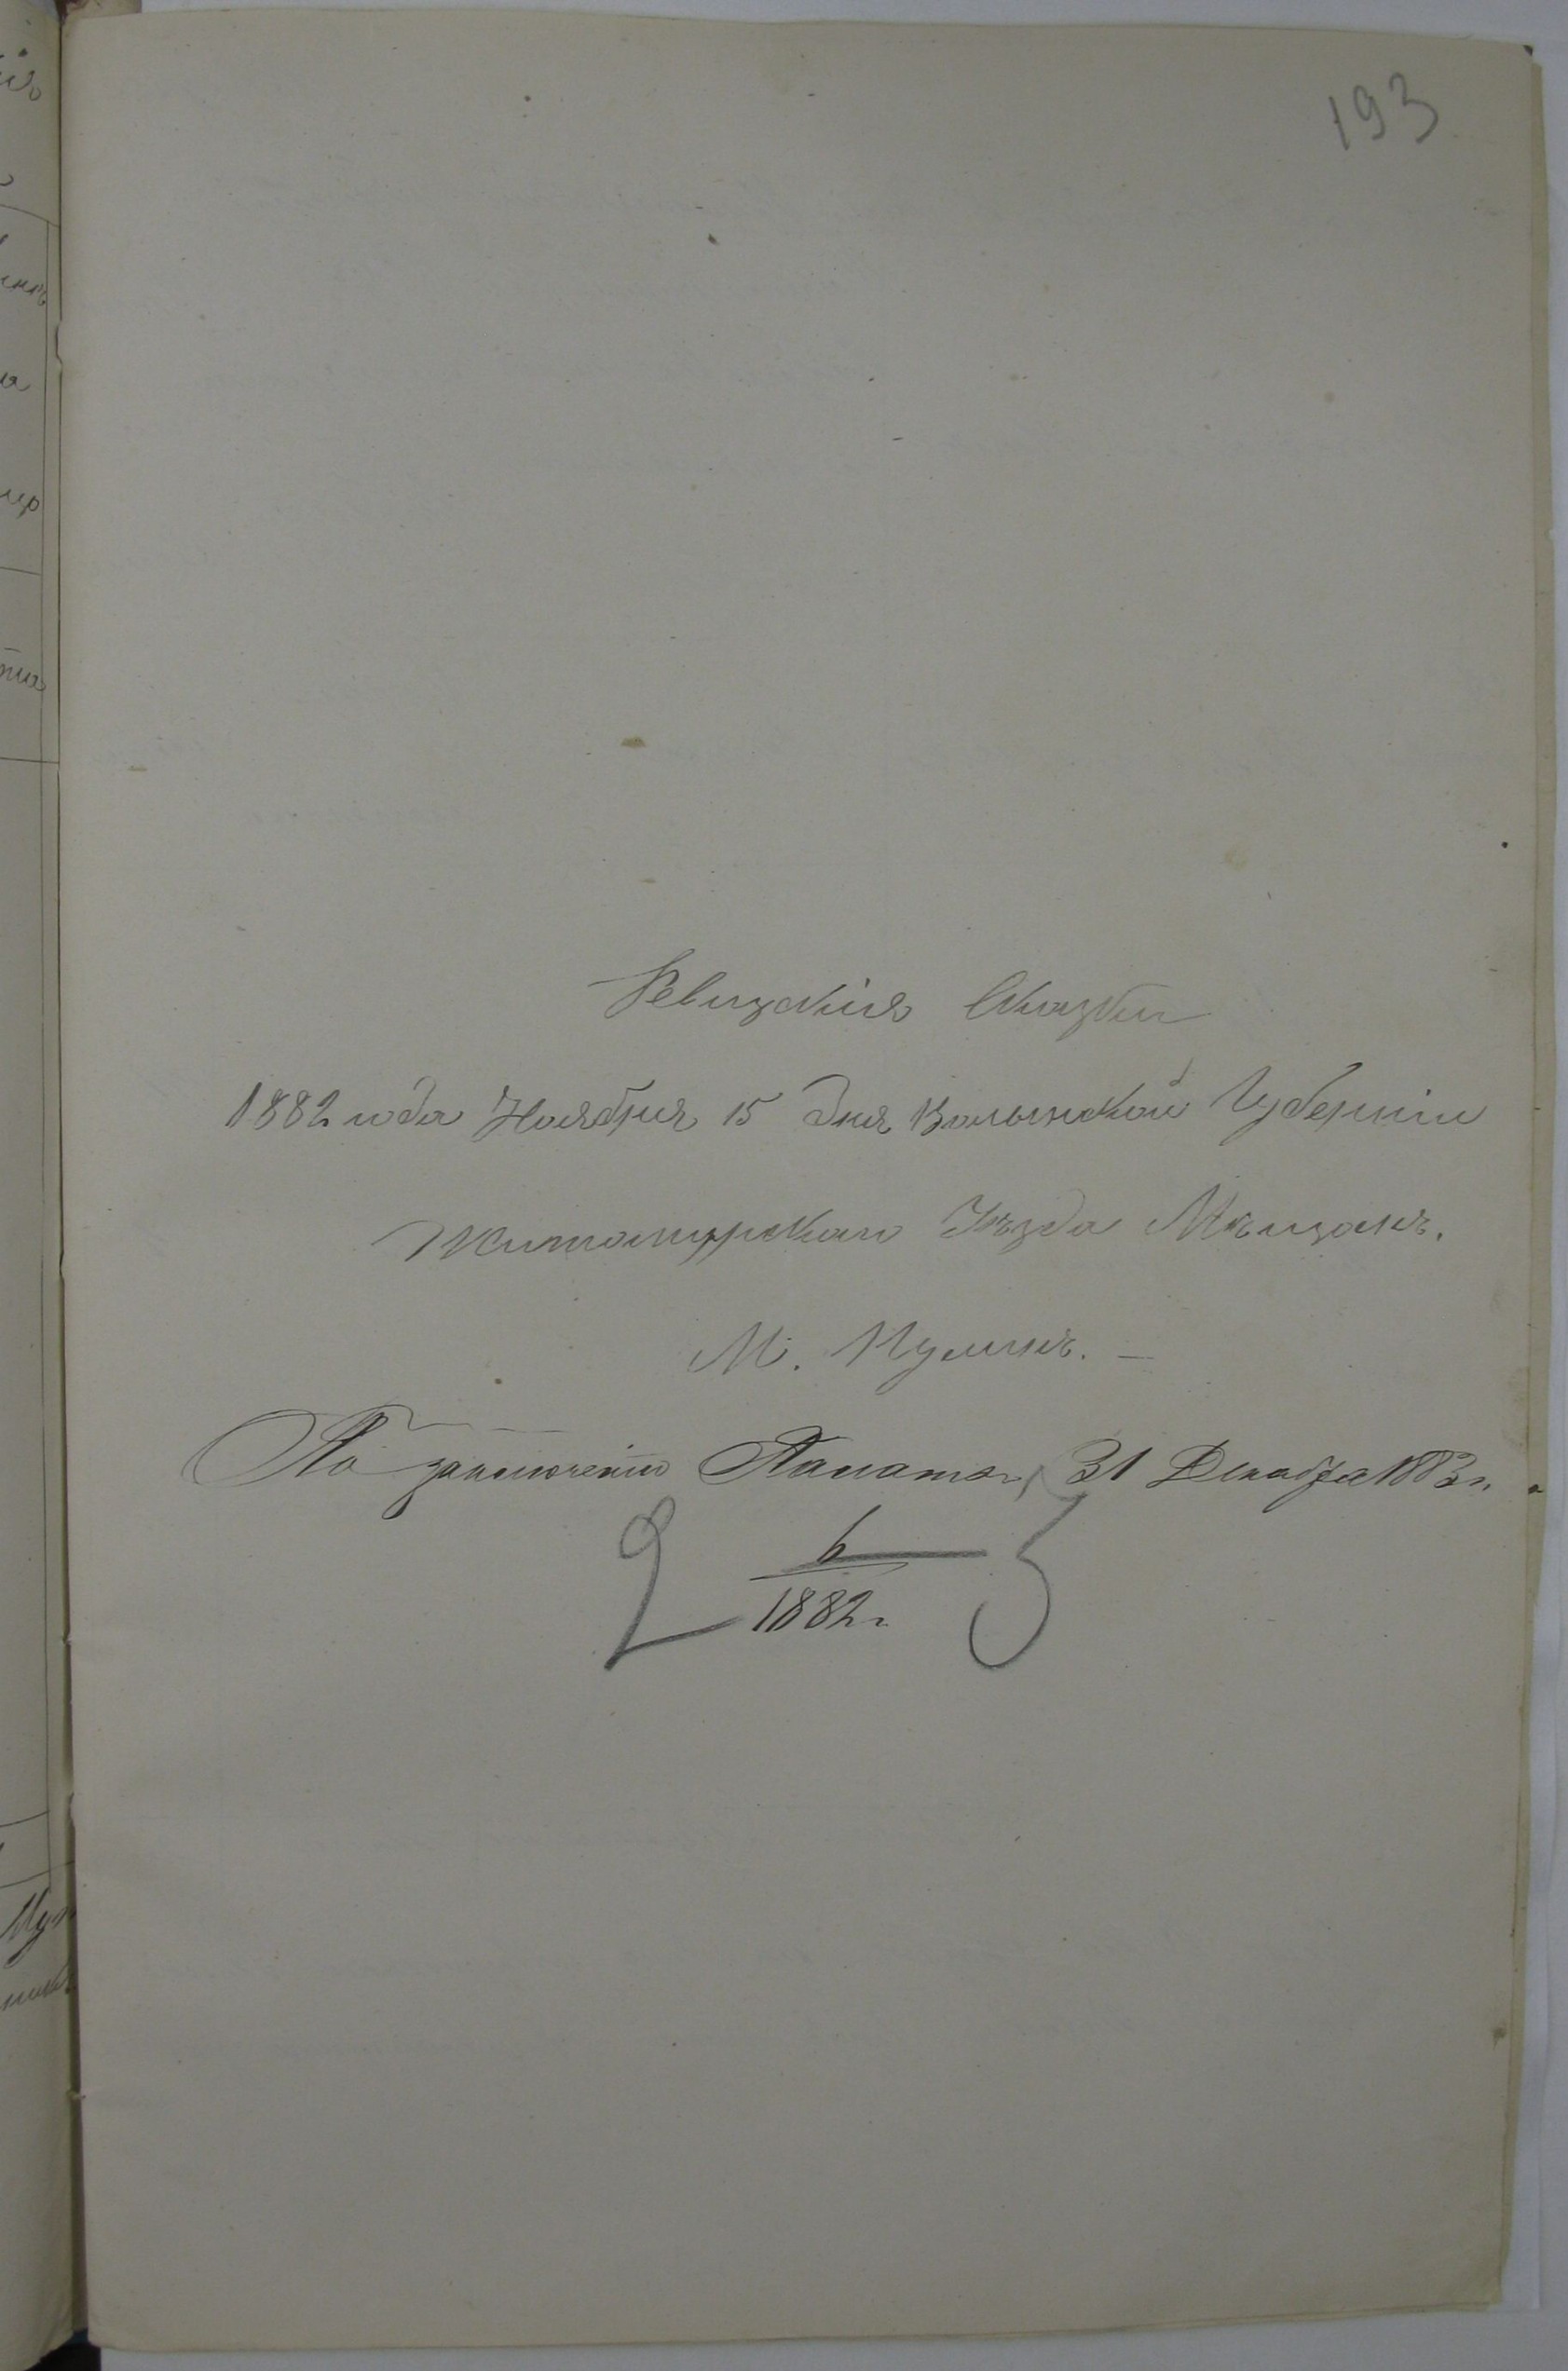 193
Ревизскія Сказки
1882 года Ноября 15 дня Волынской Губерніи
Житомирскаго Уѣзда Мѣщанъ.
М. Пулинъ. —
По заключенію Палаты, 31 Декабря 1883 г.
6
1882 г.